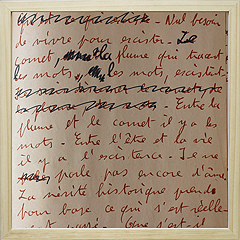 Nul besoin
de vivre pour exister. Le
carnet, la plume qui tracent
les mots, les mots, existent.
Entre la
plume et le carnet il y a les
mots - Entre l'être et la vie
il y a l'existence. Je ne
parle pas encore d'âme
La vérité historique prend
pour base ce qui s'est réelle-